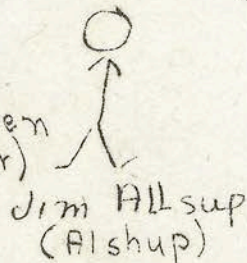 en
r)
Jim Allsup
(Alshup)